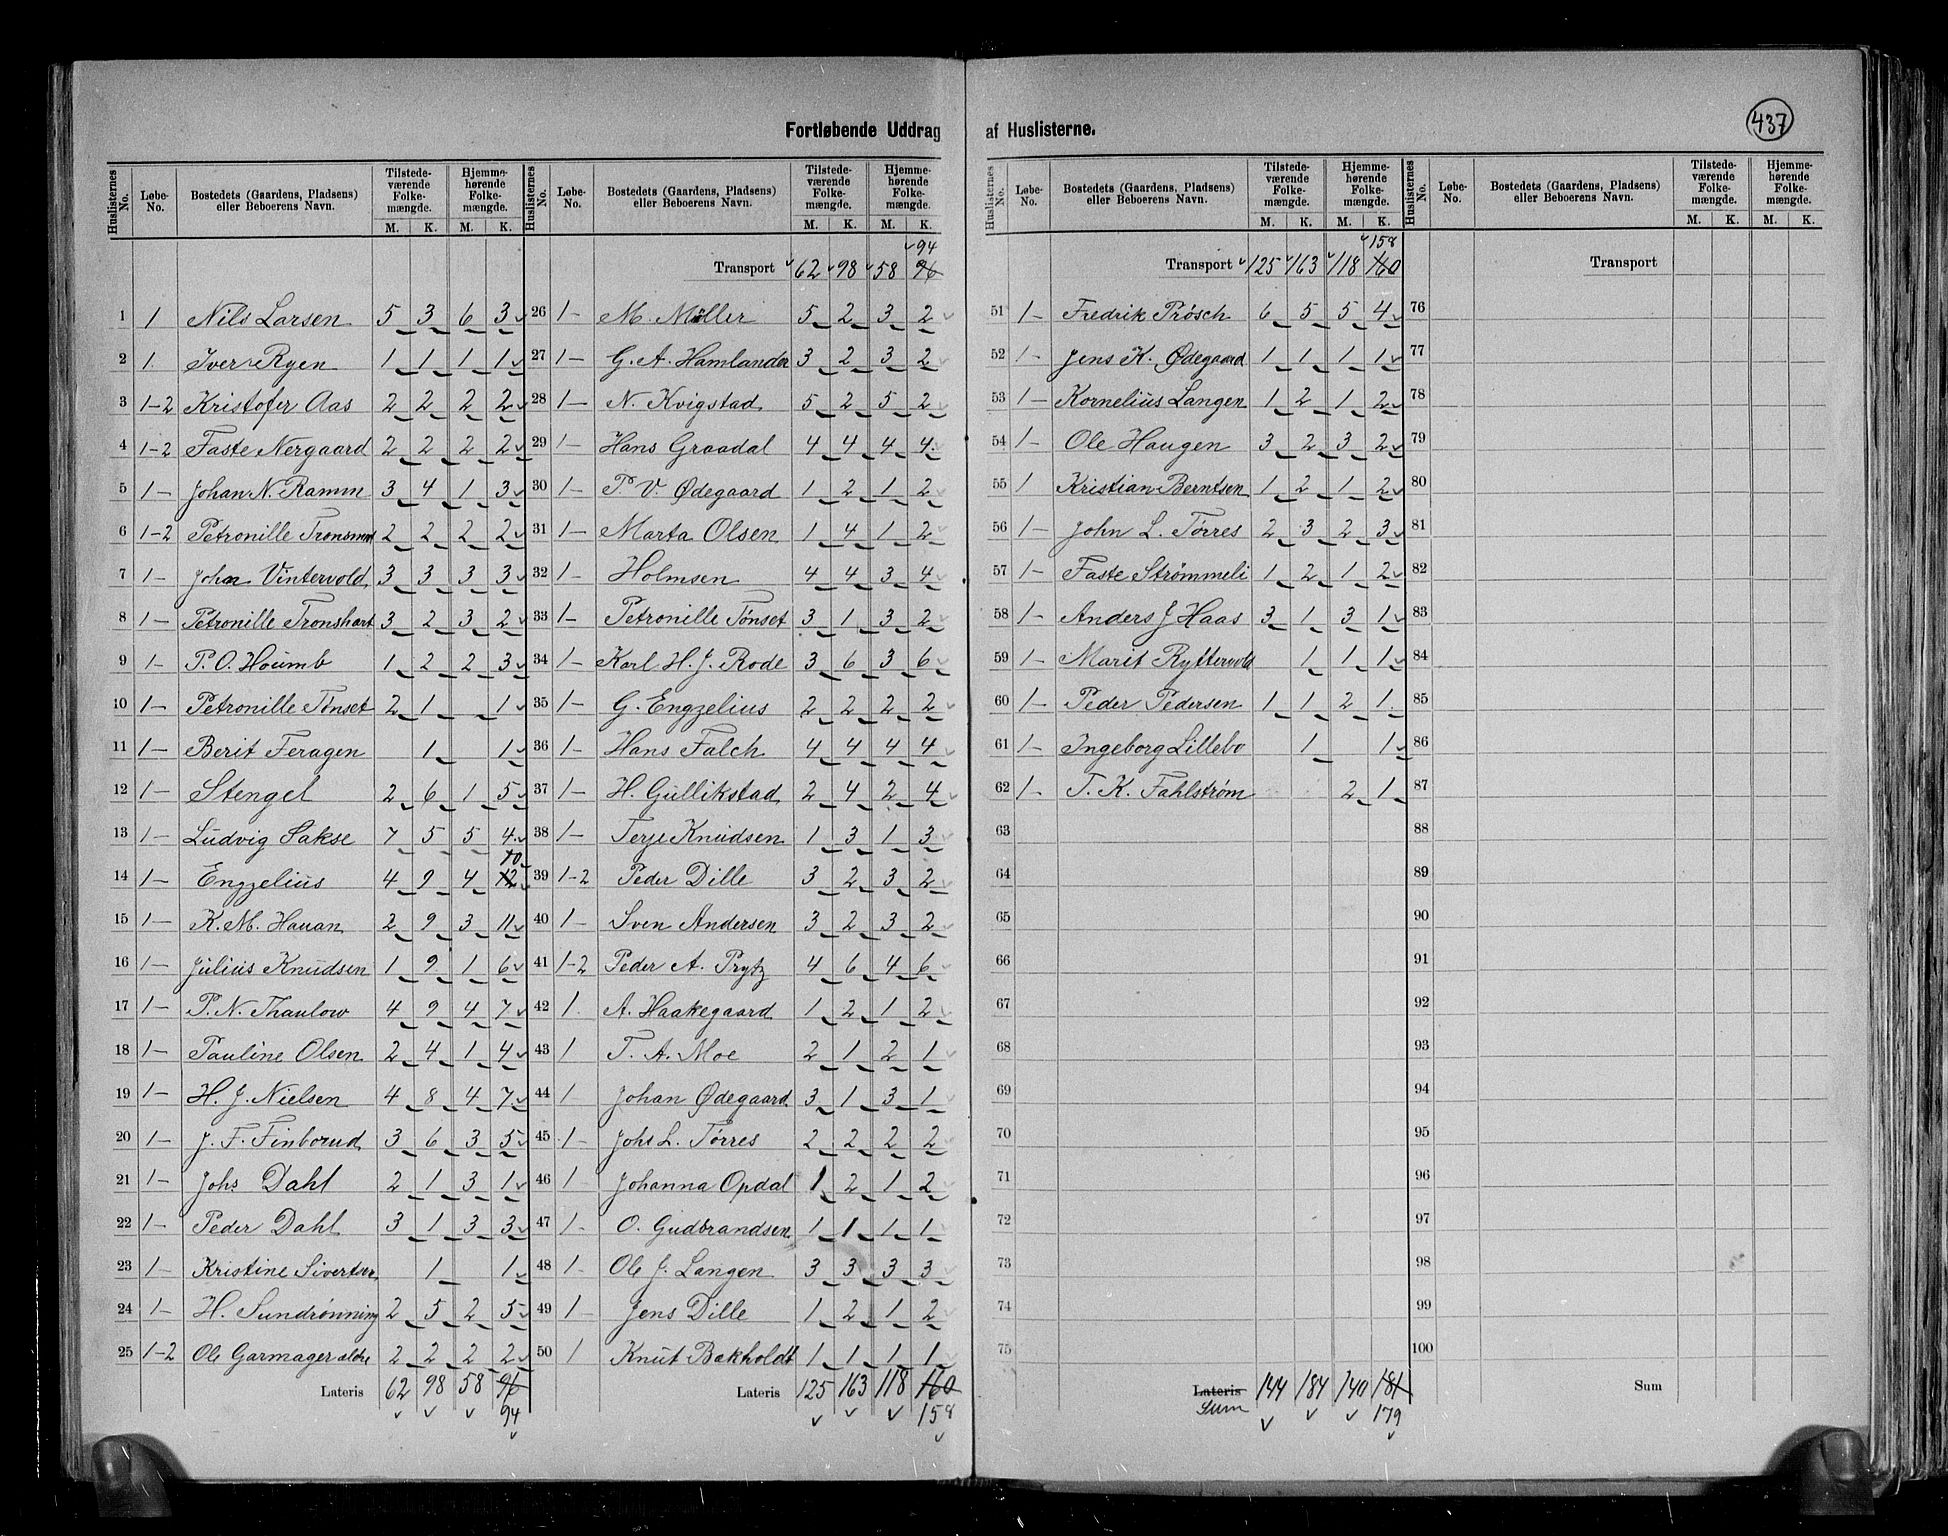 Fortløbende Uddrag af Huslisterne.
437
Huslisternes No. Løbe-No. Bostedets (Gaardens, Pladsens) eller Beboerens Navn. Tilstede-værende Folke-mængde. M. K. Hjemme-hørende Folke-mængde. M. K.
1 1 Nils Larsen 5 3 6 3
2 1. Iver Ryen 1 1 1 1
3 1-2 Kristofer Aas 2 2 2 2
4 1-2 Faste Nergaard 2 2 2 2
5 1- Johan N. Ramm 3 4 1 3
6 1-2 Petronille 2 2 2 2
7 1- John Vintervold 3 3 3 3
8 1- Petronille Tronshart 3 2 3 2
9 1- P. O. Houmb 1 2 2 3
10 1- Petronille Tønset 2 1 1
11 1- Berit Feragen 1 1
12 1- Stengel 2 6 1 5
13 1- Ludvig Sakse 7 5 5 4
14 1- Engzelius 4 9 4 12 10
15 1- K. M. Hauan 2 9 3 11
16 1- Julius Knudsen 1 9 1 6
17 1- P. N. Thaulow 4 9 4 7
18 1- Pauline Olsen 2 4 1 4
19 1- H. J. Nielsen 4 8 4 7
20 1- J. F. Finborud 3 6 3 5
21 1- Johs Dahl 2 1 3 1
22 1- Peder Dahl 3 1 3 3
23 1- Kristine Sivertsen 1 1
24 1- H. Sundrønning 2 5 2 5
25 1-2 Ole Garmager ældre 2 2 2 2
Lateris 62 98 58 96
94
Huslisternes No. Løbe-No. Bostedets (Gaardens, Pladsens) eller Beboerens Navn. Tilstede-værende Folke-mængde. M. K. Hjemme-hørende Folke-mængde. M. K.
94
Transport 62 98 58 96
26 1- M. Møller 5 2 3 2
27 1- G. A. Hamlander 3 2 3 2
28 1- N. Kvigstad 5 2 5 2
29 1- Hans Graadal 4 4 4 4
30 1- P. V. Ødegaard 1 2 1 2
31 1- Marta Olsen 1 4 1 2
32 1- Holmsen 4 4 3 4
33 1- Petronille Tønset 3 1 3 2
34 1- Karl H. J. Rode 3 6 3 6
35 1- G. Engzelius 2 2 2 2
36 1- Hans Falch 4 4 4 4
37 1- H. Gullikstad 2 4 2 4
38 1- Terje Knudsen 1 3 1 3
39 1-2 Peder Dille 3 2 3 2
40 1- Sven Andersen 3 2 3 2
41 1-2 Peder A. Prytz 4 6 4 6
42 1. A. Haakegaard 1 2 1 2
43 1 T. A. Moe 2 1 2 1
44 1 Johan Ødegaard 3 1 3 1
45 1- Johs L. Tørres 2 2 2 2
46 1 Johanna Opdal 1 2 1 2
47 1- O. Gudbrandsen 1 1 1 1
48 1- Ole J. Langen 3 3 3 3
49 1- Jens Dille 1 2 1 2
50 1 Knut Bakholdt 1 1 1 1
Lateris 125 163 118 160
158
Huslisternes No. Løbe-No. Bostedets (Gaardens, Pladsens) eller Beboerens Navn. Tilstede-værende Folke-mængde. M. K. Hjemme-hørende Folke-mængde. M. K.
158
Transport 125 163 118 160
51 1- Fredrik Prösch 6 5 5 4
52 1- Jens K. Ødegaard 1 1 1 1
53 1- Kornelius Langen 1 2 1 2
54 1- Ole Haugen 3 2 3 2
55 1 Kristian Berntsen 1 2 1 2
56 1- John L. Tørres 2 3 2 3
57 1- Faste Strømmeli 1 2 1 2
58 1- Anders J Haas 3 1 3 1
59 1- Marit Ryttervold 1 1 1
60 1- Peder Pedersen 1 1 2 1
61 1- Ingeborg Lillebo 1 1
62 1- T. K. Fahlstrøm 2 1
63
64
65
66
67
68
69
70
71
72
73
74
75
Lateris 144 184 140 181
Sum 179
Huslisternes No. Løbe-No. Bostedets (Gaardens, Pladsens) eller Beboerens Navn. Tilstede-værende Folke-mængde. M. K. Hjemme-hørende Folke-mængde. M. K.
Transport
76
77
78
79
80
81
82
83
84
85
86
87
88
89
90
91
92
93
94
95
96
97
98
99
100
Sum